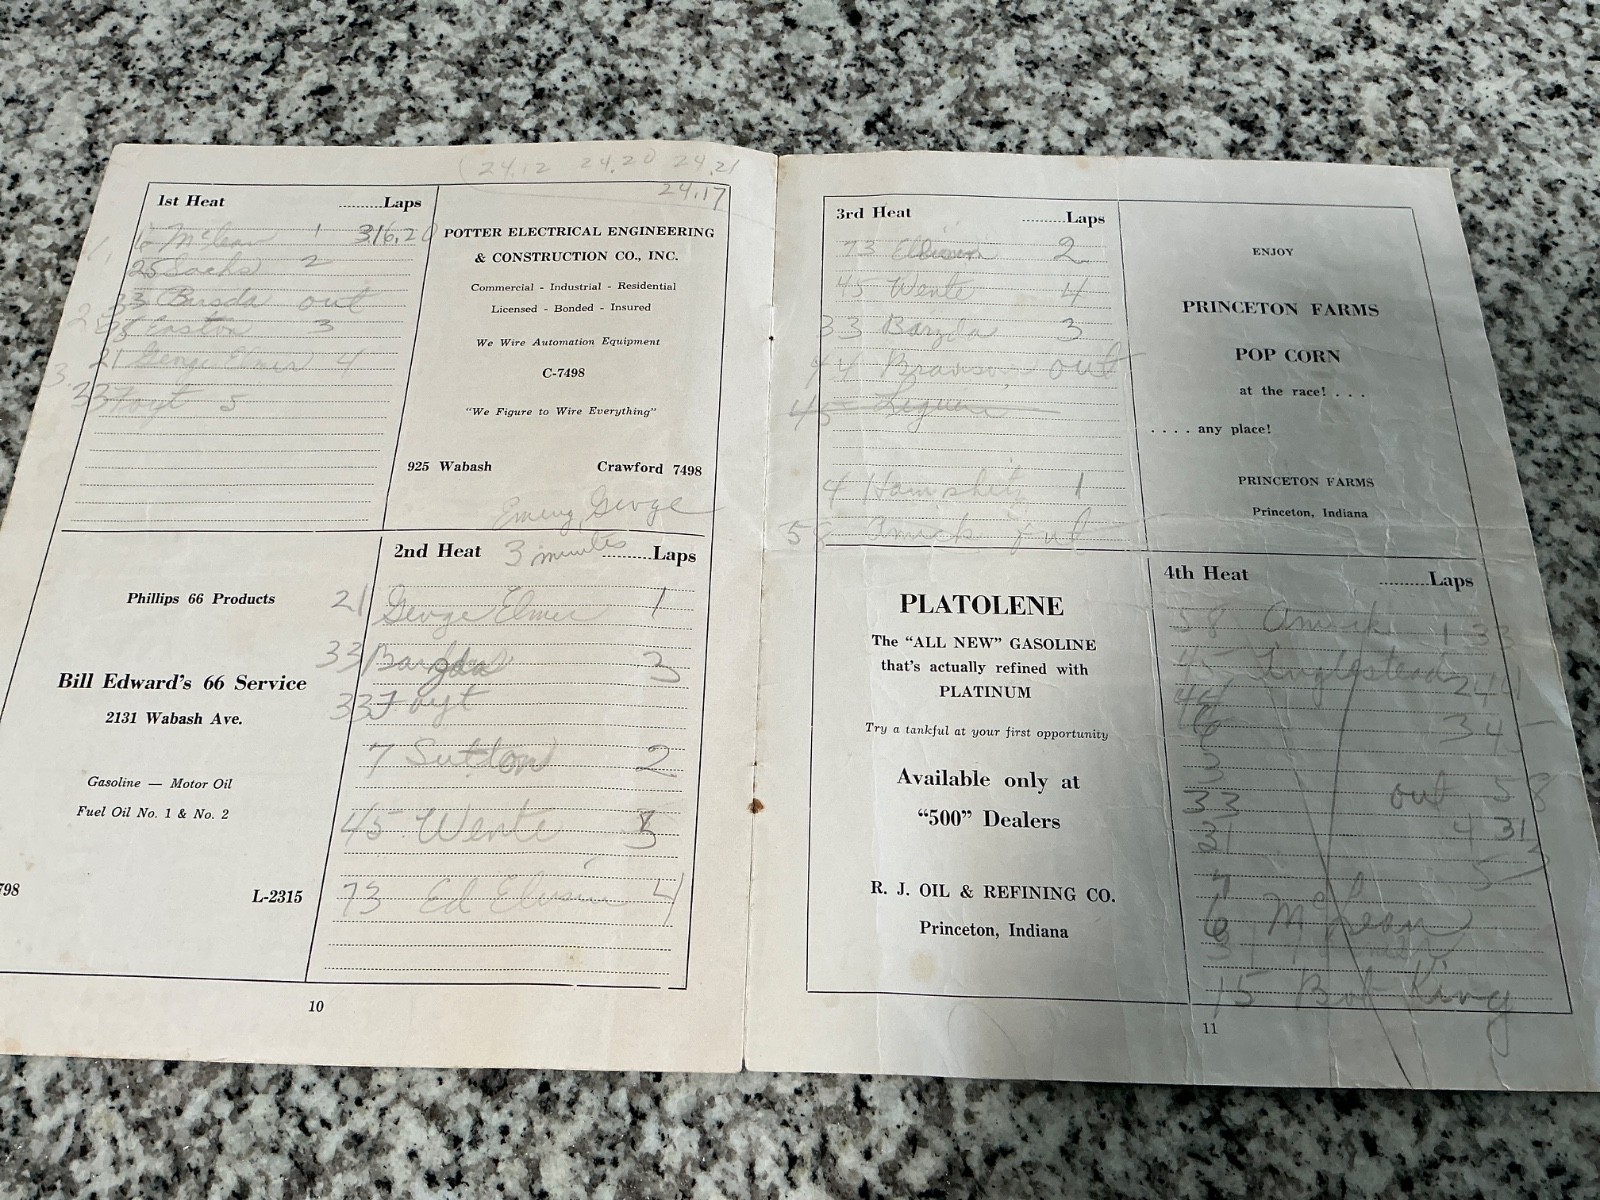 24.12 24.20 24.21
24.17
1st Heat ..........Laps
6 McLean 1 316.20
25 Sachs 2
33 Barzda out
Easton 3
21 George Elmer 4
33 Foyt 5
POTTER ELECTRICAL ENGINEERING
& CONSTRUCTION CO., INC.
Commercial - Industrial - Residential
Licensed - Bonded - Insured
We Wire Automation Equipment
C-7498
"We Figure to Wire Everything"
925 Wabash Crawford 7498
George
Phillips 66 Products
Bill Edward's 66 Service
2131 Wabash Ave.
Gasoline — Motor Oil
Fuel Oil No. 1 & No. 2
798 L-2315
2nd Heat 3 minutes ..........Laps
21 George Elmer 1
33 Barzda 3
33 Foyt
7 Sutton 2
45 Wente 5
73 Ed Elisian 4
10
3rd Heat ..........Laps
73 Elisian 2
45 Wente 4
33 Barzda 3
44 Branson out
45
4 1
58 Amick
ENJOY
PRINCETON FARMS
POP CORN
at the race! . . .
. . . . any place!
PRINCETON FARMS
Princeton, Indiana
PLATOLENE
The "ALL NEW" GASOLINE
that's actually refined with
PLATINUM
Try a tankful at your first opportunity
Available only at
"500" Dealers
R. J. OIL & REFINING CO.
Princeton, Indiana
4th Heat ..........Laps
58 Amick 1 33
45 2 44
44
6 3 45
3
33 out 58
31 4 31
7 5 7
6 McLean
15 Bob King
11